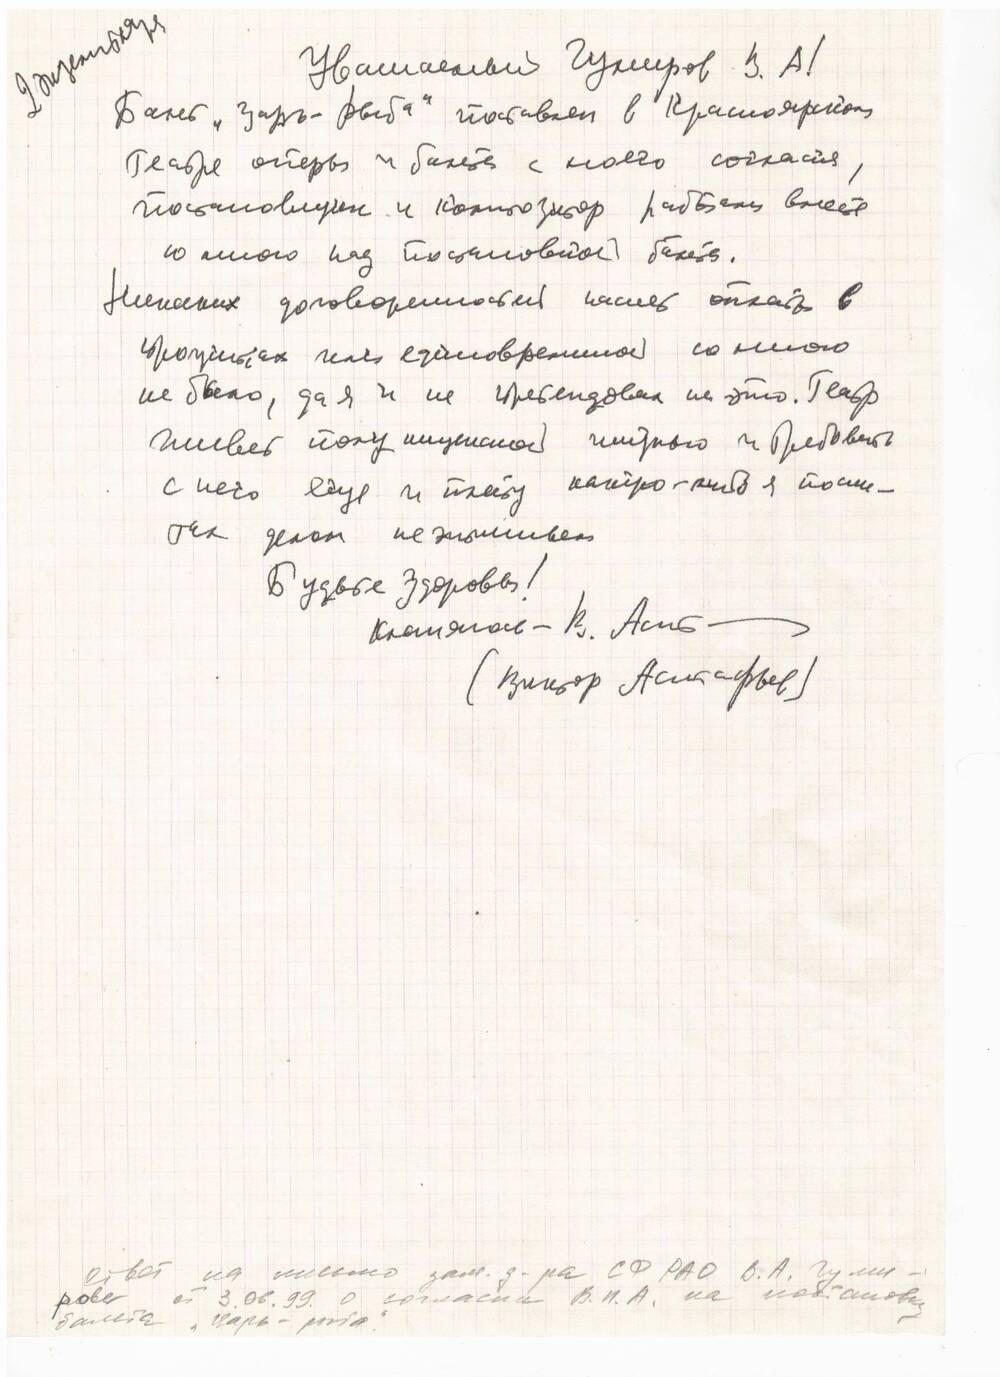 2 экземпляра
Уважаемый Гумиров В. А!
Балет „Царь-рыба“ поставлен в Красноярском
театре оперы и балета с моего согласия,
постановщик и композитор работали вместе
со мною над постановкой балета.
Никаких договоренностей насчет оплаты в
процентах или единовременной со мною
не было, да я и не претендовал на это. Театр
живет полунищенской жизнью и требовать
с него еще и плату какую-либо я посчи-
тал делом немыслимым
Будьте здоровы!
Кланяюсь – В. Аст
(Виктор Астафьев)
ответ на письмо зам. д-ра СФ РАО В.А. Гуми-
рова от 3.06.99. о согласии В.П.А. на постановку
балета „Царь-рыба“.